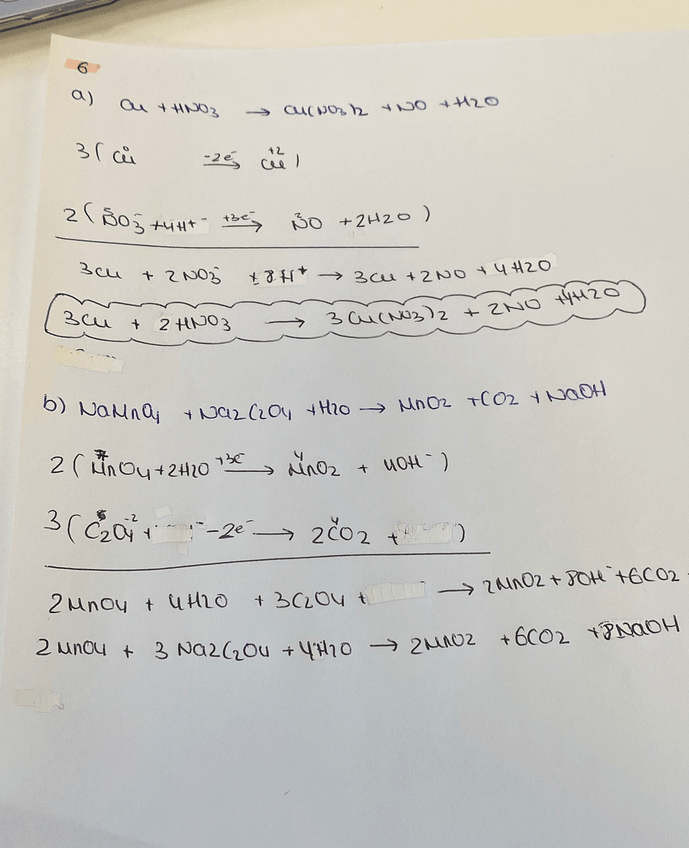 6
a) Cu + HNO3 → Cu(NO3)2 + NO + H2O
3( Cu⁰ -2e⁻→ Cu⁺² )
2( N⁵O3⁻ + 4H+⁻ +3e⁻→ N²O + 2H2O )
3Cu + 2NO3⁻ + 8H⁺ → 3Cu + 2NO + 4H2O
3Cu + 2HNO3 → 3Cu(NO3)2 + 2NO + 4H2O
b) NaMnO4 + Na2C2O4 + H2O → MnO2 + CO2 + NaOH
2( Mn⁷O4 + 2H2O +3e⁻→ Mn⁴O2 + 4OH⁻ )
3( C2O4⁻² + ⁻ -2e⁻ → 2C⁴O2 + )
2MnO4 + 4H2O + 3C2O4 + → 2MnO2 + 8OH⁻ + 6CO2
2MnO4 + 3Na2C2O4 + 4H2O → 2MnO2 + 6CO2 + 8NaOH